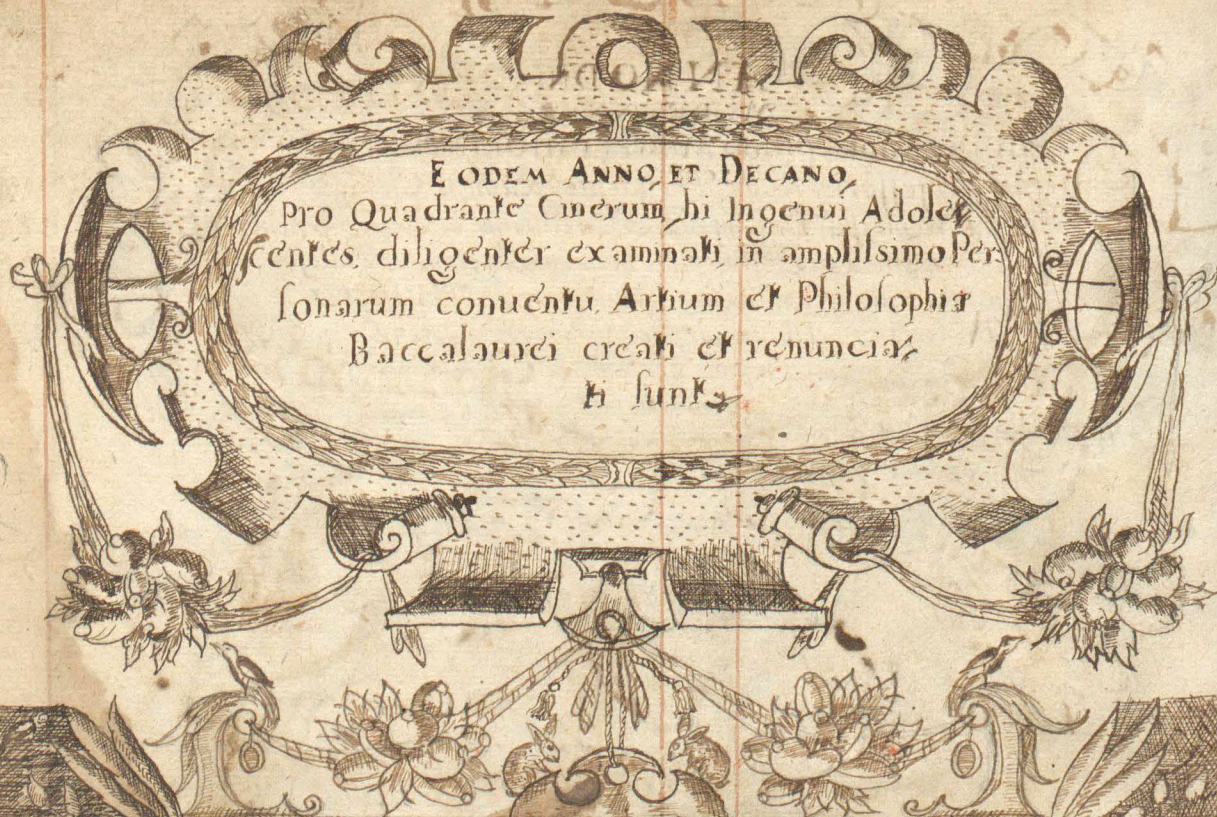 EODEM ANNO, ET DECANO,
Pro Quadrante Cinerum, hi Ingenui Adoleſ-
ſcentes, diligenter examinati, in amplıſsimo Per-
ſonarum conuentu, Artium et Philoſophiæ
Baccalaurei creati et renuncia-
ti ſunt.